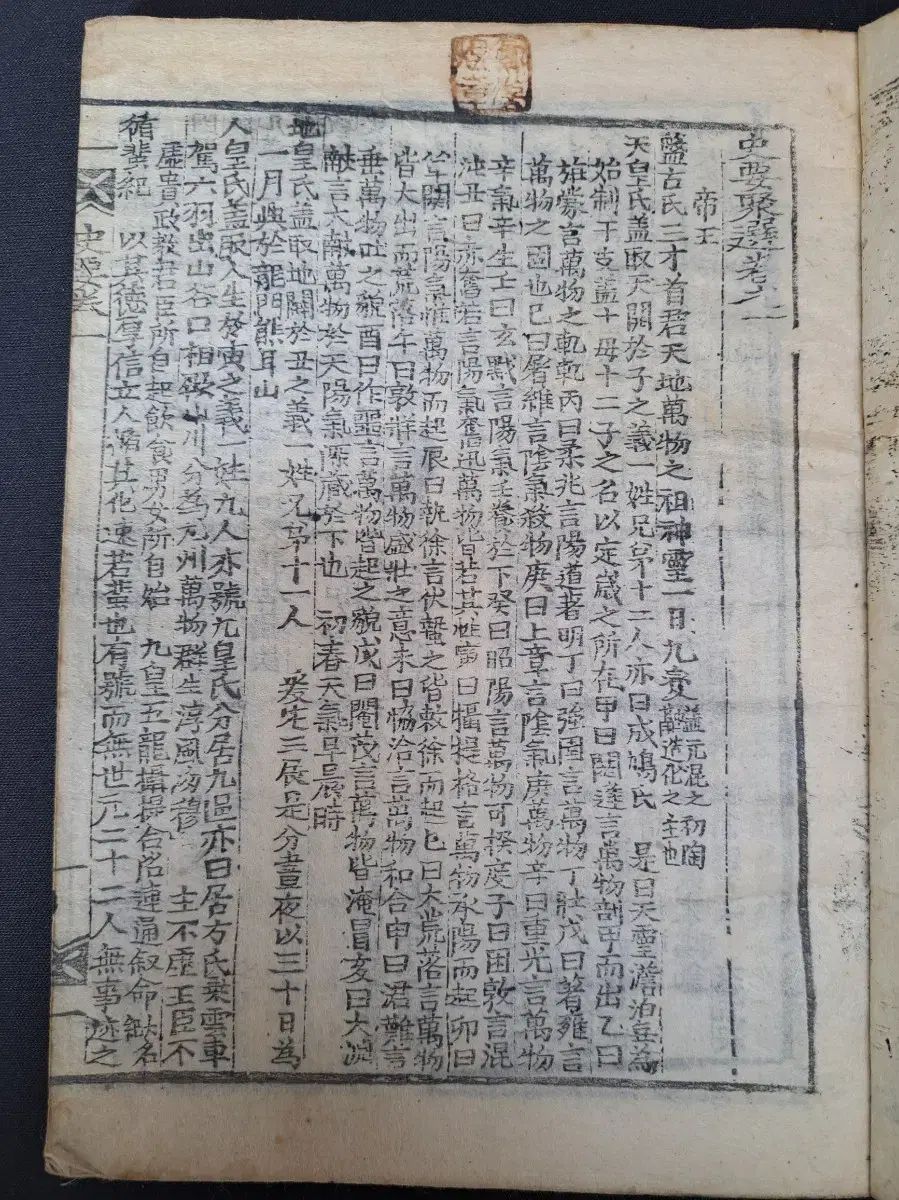 史要聚選卷之一
帝王
盤古氏三才首君天地萬物之祖神靈一日九變 盖元混之初陶
鞴造化之主也
天皇氏盖取天開於子之義一姓兄弟十二人亦曰成鳩氏 是曰天靈澹泊無爲
始制干支盖十母十二子之名以定歲之所在甲曰閼逢言萬物剖甲而出乙曰
旃蒙言萬物之軋軋丙曰柔兆言陽道著明丁曰強圉言萬物丁壯戊曰著雍言
萬物之固也己曰屠維言陰氣殺物庚曰上章言陰氣庚萬物辛曰重光言萬物
辛氣辛生壬曰玄黓言陽氣壬養於下癸曰昭陽言萬物可揆度子曰困敦言混
沌丑曰赤奮若言陽氣奮迅萬物皆若其性寅曰攝提格言萬物承陽而起卯曰
單閼言陽氣推萬物而起辰曰執徐言伏蟄之皆敕徐而起巳曰大荒落言萬物
皆大出而荒落午曰敦牂言萬物盛壯之意未曰協洽言萬物和合申曰涒灘言
垂萬物吐之貌酉曰作噩言萬物皆起之貌戊曰閹茂言萬物皆淹冒亥曰大淵
獻言大獻萬物於天陽氣深藏於下也 初春天氣早晨時
地皇氏盖取地闢於丑之義一姓兄弟十一人 爰定三晨是分晝夜以三十日爲
一月興於龍門熊耳山
人皇氏盖取人生於寅之義一姓九人亦號九皇氏分居九區亦曰居方氏乘雲車
駕六羽出山谷口相厥山川分爲九州萬物群生淳風沕穆 主不虛王臣不
虛貴政教君臣所自起飲食男女所自始 九皇五龍攝提合洛連通叙命缺名
循蜚紀 以其德厚信立人隨其化速若蜚也有號而無世凡二十二人無事迹之
史要卷一
一